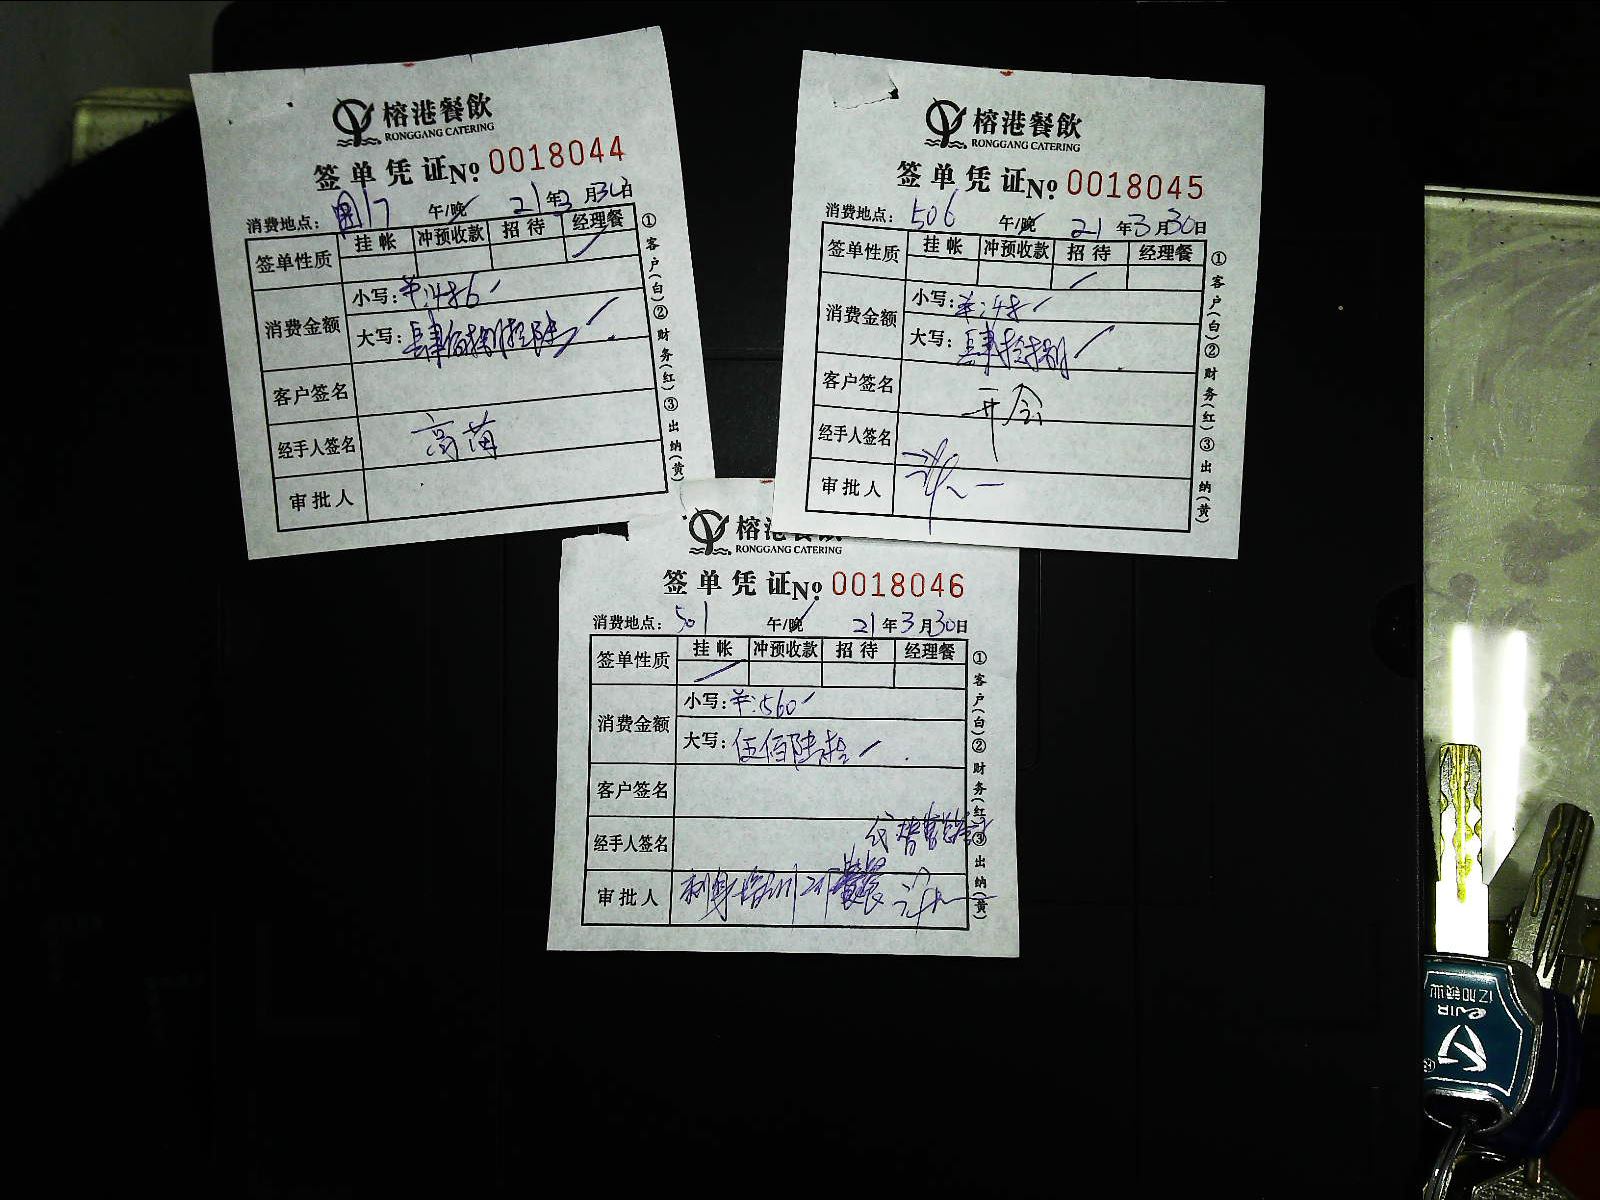 榕港餐飲
RONGGANG CATERING
签单凭证 No 0018044
消费地点: 午/晚 21年3月30日
签单性质 挂帐 冲预收款 招待 经理餐
消费金额 小写:¥:486
大写:肆佰捌拾陆
客户签名
经手人签名 高苗
审批人
①客户(白)②财务(红)③出纳(黄)
榕港餐飲
RONGGANG CATERING
签单凭证 No 0018045
消费地点: 506 午/晚 21年3月30日
签单性质 挂帐 冲预收款 招待 经理餐
消费金额 小写:¥:48
大写:肆拾捌
客户签名 开会
经手人签名
审批人
①客户(白)②财务(红)③出纳(黄)
榕港餐飲
RONGGANG CATERING
签单凭证 No 0018046
消费地点: 501 午/晚 21年3月30日
签单性质 挂帐 冲预收款 招待 经理餐
消费金额 小写:¥:560
大写:伍佰陆拾
客户签名
经手人签名
审批人 刺身培训
①客户(白)②财务(红)③出纳(黄)
亿加锁业
eJIA